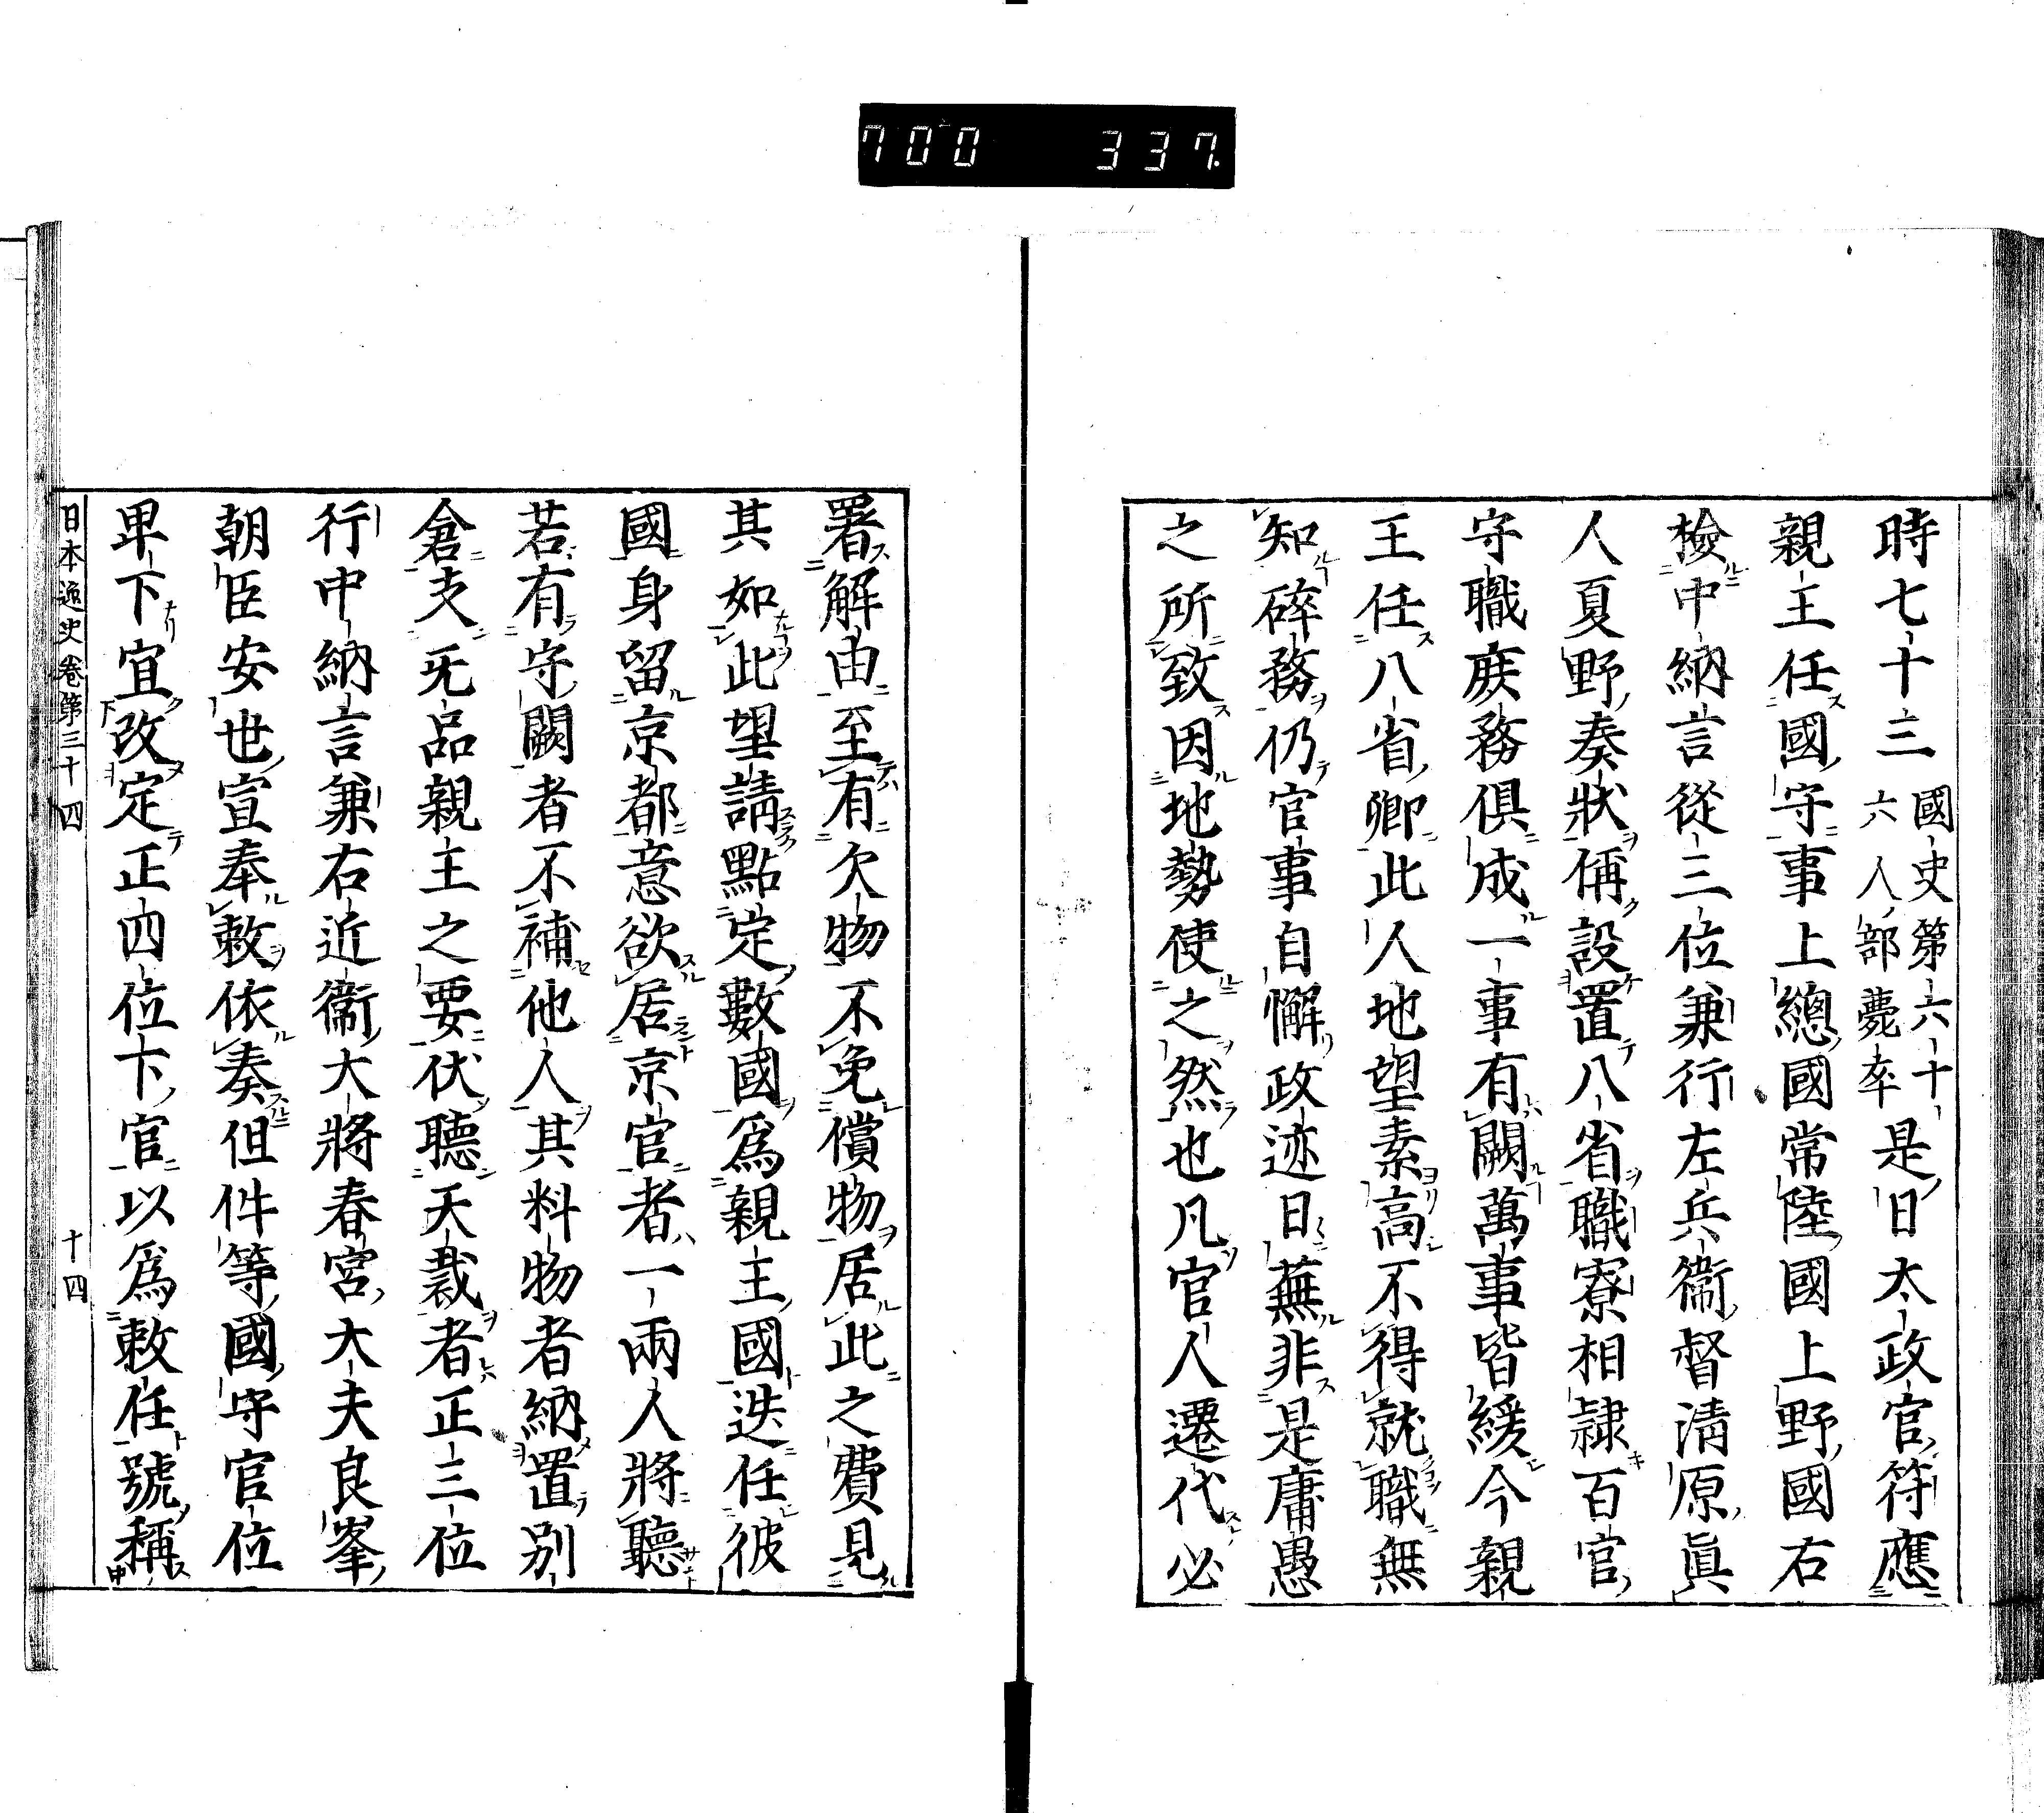 700 337
時七十三國史第六十六人部薨卒是日太政官符應
親王任國守事上總國常陸國上野國右
檢中納言從三位兼行左兵衞督淸原眞
人夏野奏狀偁設置八省職寮相隷百官
守職庶務俱成一事有闕萬事皆緩今親
王任八省卿此人地望素高不得就職無
知碎務仍官事自懈政迹日蕪非是庸愚
之所致因地勢使之然也凡官人遷代必
署解由至有欠物不免償物居此之費見
其如此望請點定數國爲親王國迭任彼
國身留京都意欲居京官者一兩人將聽
若有守闕者不補他人其料物者納置別
倉支无品親王之要伏聽天裁者正三位
行中納言兼右近衞大將春宮大夫良峯
朝臣安世宣奉敕依奏但件等國守官位
卑下宜改定正四位下官以爲敕任號稱
日本逸史卷第三十四 十四